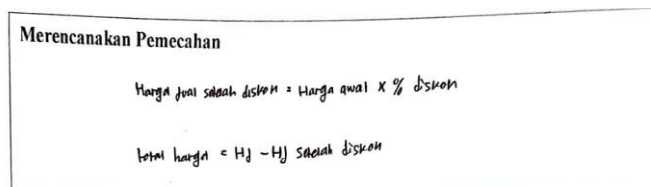 Merencanakan Pemecahan
Harga jual setelah diskon = Harga awal x % diskon
total harga = HJ - HJ setelah diskon